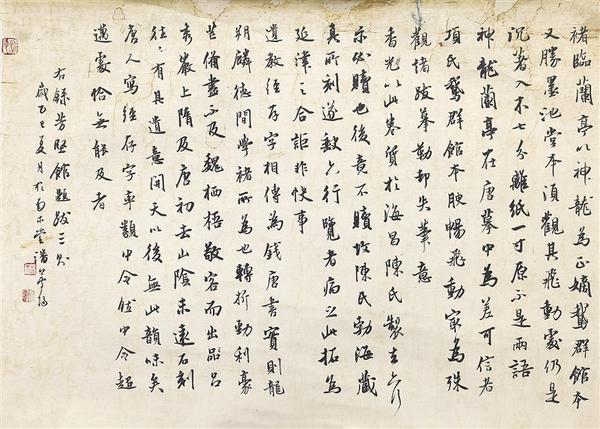 褚臨蘭亭以神龍為正嫡鵞群館本
又勝墨池堂本須觀其飛動處仍是
沉著入木七分離紙一寸原不是兩語
神龍蘭亭在唐摹中為差可信者
項氏鵞群館本腴暢飛動最為殊
觀諸跋摹勒却失筆意
香光以此卷質於海昌陳氏製去六行
示必贖也後竟不贖故陳氏勒海
真所刻遂缺六行覽者病之此拓為
延津之合詎非快事
遺教經存字相傳為錢唐書實則龍
朔麟德間學褚所為也轉折勁利豪
芒備盡不及魏栖梧敬容而出品呂
秀巖上隋及唐初去山陰未遠石刻
往往有其遺意開天以後無此韻味矣
唐人寫經存字率類中令然中令超
邁處恰無能及者
右錄芳堅館題跋三則
歲乙丑夏月於南禾堂潘